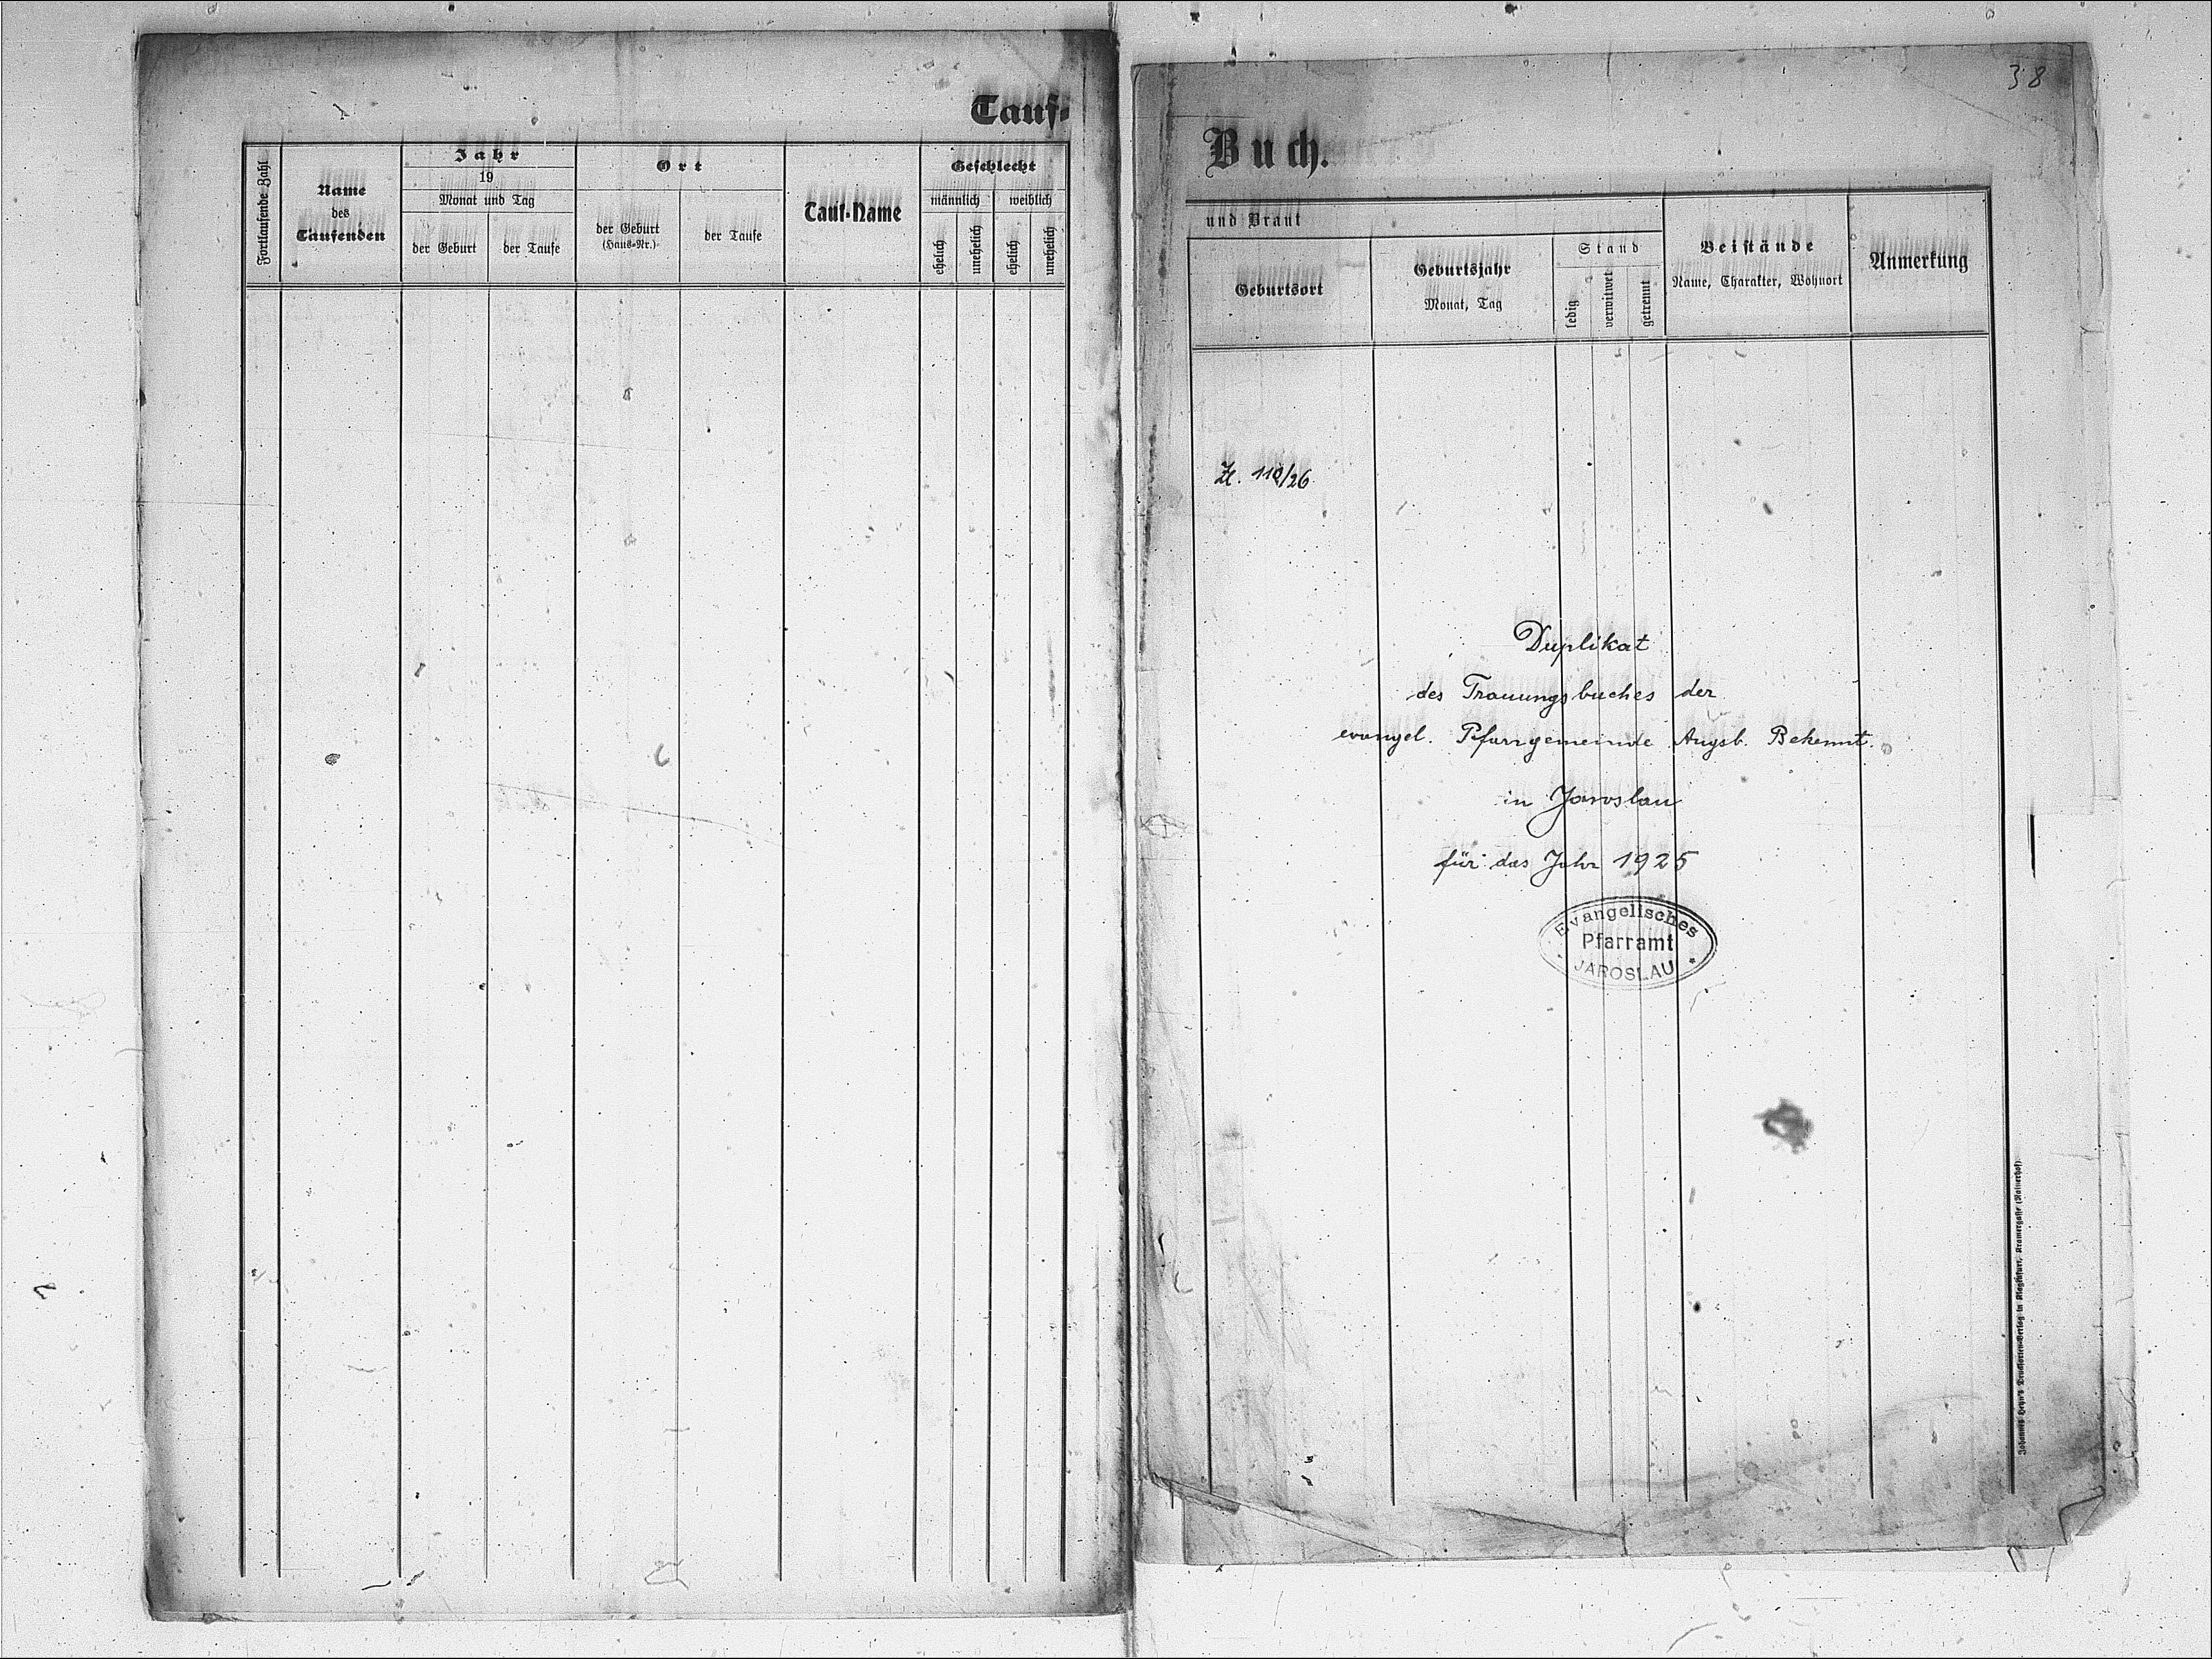 Tauf-
Fortlaufende Zahl
Name
des
Taufenden
Jahr
19
Monat und Tag
der Geburt
der Taufe
Ort
der Geburt
(Haus-Nr.)
der Taufe
Tauf-Name
Geschlecht
männlich
weiblich
ehelich
unehelich
ehelich
unehelich
38
Buch.
und Braut
Geburtsort
Geburtsjahr
Monat, Tag
Stand
ledig
verwitwet
getrennt
Beistände
Name, Charakter, Wohnort
Anmerkung
Zl. 110/26
Duplikat
des Trauungsbuches der
evangel. Pfarrgemeinde Augsb. Bekennt.
in Jaroslau
für das Jahr 1925
Evangelisches
Pfarramt
JAROSLAU
Johannes Heyn's Drucksorten-Verlag in Klagenfurt, Kramergasse (Rainerhof).